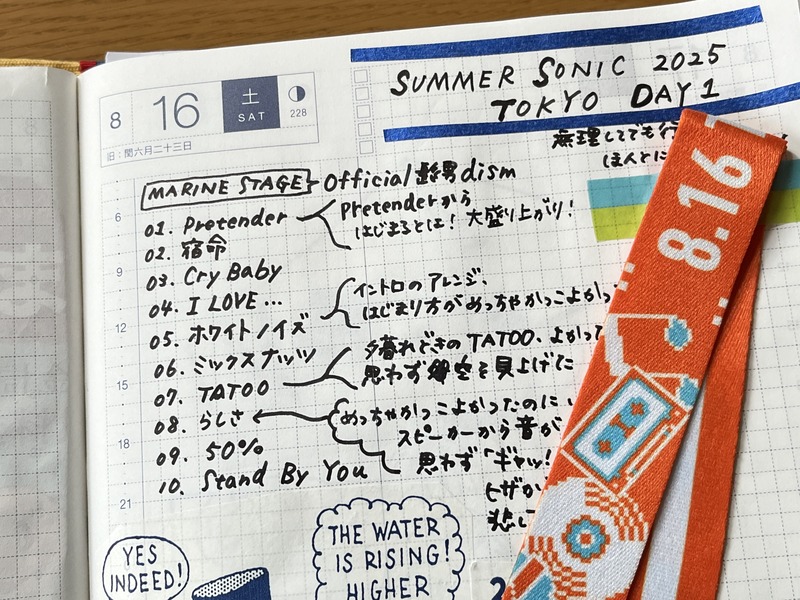 8 16 土 SAT 228
旧：閏六月二十三日
SUMMER SONIC 2025
TOKYO DAY 1
無理してでも行
ほんとに
MARINE STAGE Official髭男dism
01. Pretender
Pretenderから
はじまるとは！大盛り上がり！
02. 宿命
03. Cry Baby
04. I LOVE...
イントロのアレンジ、
はじまり方がめっちゃかっこよかっ
05. ホワイトノイズ
06. ミックスナッツ
夕暮れどきのTATOO、よかっ
07. TATOO
思わず空を見上げた
08. らしさ
めっちゃかっこよかったのに
スピーカーから音が
09. 50%
思わず「ギャッ!
10. Stand By You
ヒザか
悲し
6
9
12
15
18
21
YES
INDEED!
THE WATER
IS RISING!
HIGHER
8.16